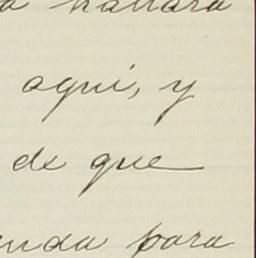 a hallara
aquí, y
de que
enda para